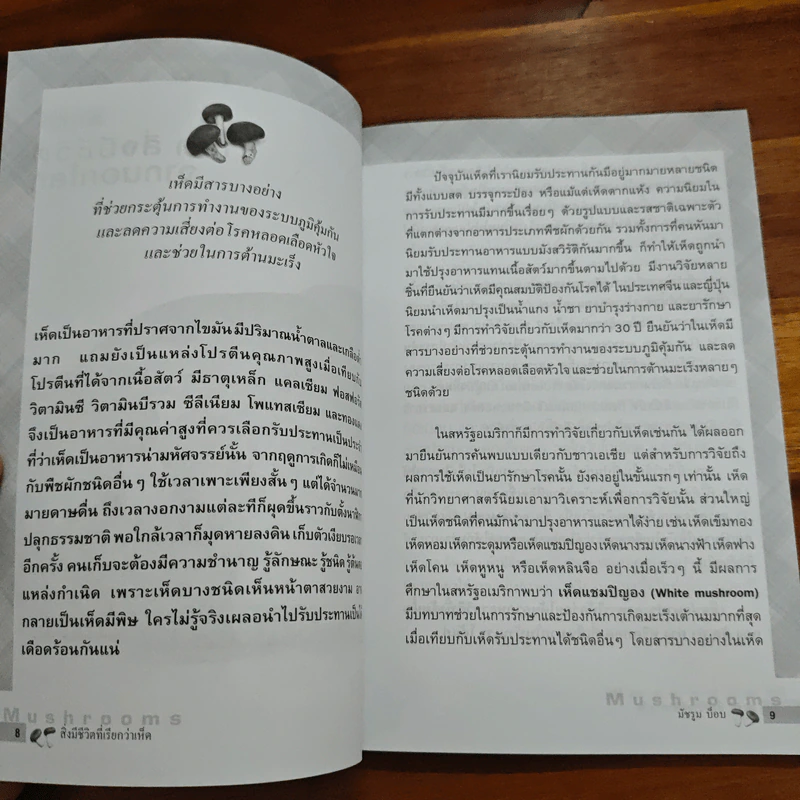 เห็ดมีสารบางอย่าง
ที่ช่วยกระตุ้นการทำงานของระบบภูมิคุ้มกัน
และลดความเสี่ยงต่อโรคหลอดเลือดหัวใจ
และช่วยในการต้านมะเร็ง
เห็ดเป็นอาหารที่ปราศจากไขมัน มีปริมาณน้ำตาลและเกลือต่ำ
มาก แถมยังเป็นแหล่งโปรตีนคุณภาพสูงเมื่อเทียบกับ
โปรตีนที่ได้จากเนื้อสัตว์ มีธาตุเหล็ก แคลเซียม
วิตามินซี วิตามินบีรวม ซีลีเนียม โพแทสเซียม และทองแดง
จึงเป็นอาหารที่มีคุณค่าสูงที่ควรเลือกรับประทานเป็น
ที่ว่าเห็ดเป็นอาหารน่ามหัศจรรย์นั้น จากฤดูการเกิดก็ไม่เหมือน
กับพืชผักชนิดอื่นๆ ใช้เวลาเพาะเพียงสั้นๆ แต่ได้จำนวน
มายดาษดื่น ถึงเวลางอกงามแต่ละทีก็ผุดขึ้นราวกับตั้ง
ปลุกธรรมชาติ พอใกล้เวลาก็มุดหายลงดิน เก็บตัวเงียบ
อีกครั้ง คนเก็บจะต้องมีความชำนาญ รู้ลักษณะ รู้ชนิด
แหล่งกำเนิด เพราะเห็ดบางชนิดเห็นหน้าตาสวยงาม
กลายเป็นเห็ดมีพิษ ใครไม่รู้จริงเผลอนำไปรับประทาน
เดือดร้อนกันแน่
Mushrooms
8 สิ่งมีชีวิตที่เรียกว่าเห็ด
ปัจจุบันเห็ดที่เรานิยมรับประทานกันมีอยู่มากมายหลายชนิด
มีทั้งแบบสด บรรจุกระป๋อง หรือแม้แต่เห็ดตากแห้ง ความนิยมใน
การรับประทานมีมากขึ้นเรื่อยๆ ด้วยรูปแบบและรสชาติเฉพาะตัว
ที่แตกต่างจากอาหารประเภทพืชผักด้วยกัน รวมทั้งการที่คนหันมา
นิยมรับประทานอาหารแบบมังสวิรัติกันมากขึ้น ก็ทำให้เห็ดถูกนำ
มาใช้ปรุงอาหารแทนเนื้อสัตว์มากขึ้นตามไปด้วย มีงานวิจัยหลาย
ชิ้นที่ยืนยันว่าเห็ดมีคุณสมบัติป้องกันโรคได้ ในประเทศจีน และญี่ปุ่น
นิยมนำเห็ดมาปรุงเป็นน้ำแกง น้ำชา ยาบำรุงร่างกาย และยารักษา
โรคต่างๆ มีการทำวิจัยเกี่ยวกับเห็ดมากว่า 30 ปี ยืนยันว่าในเห็ดมี
สารบางอย่างที่ช่วยกระตุ้นการทำงานของระบบภูมิคุ้มกัน และลด
ความเสี่ยงต่อโรคหลอดเลือดหัวใจ และช่วยในการต้านมะเร็งหลายๆ
ชนิดด้วย
ในสหรัฐอเมริกาก็มีการทำวิจัยเกี่ยวกับเห็ดเช่นกัน ได้ผลออก
มายืนยันการค้นพบแบบเดียวกับชาวเอเชีย แต่สำหรับการวิจัยถึง
ผลการใช้เห็ดเป็นยารักษาโรคนั้น ยังคงอยู่ในขั้นแรกๆ เท่านั้น เห็ด
ที่นักวิทยาศาสตร์นิยมเอามาวิเคราะห์เพื่อการวิจัยนั้น ส่วนใหญ่
เป็นเห็ดชนิดที่คนมักนำมาปรุงอาหารและหาได้ง่าย เช่น เห็ดเข็มทอง
เห็ดหอม เห็ดกระดุมหรือเห็ดแชมปิญอง เห็ดนางรม เห็ดนางฟ้า เห็ดฟาง
เห็ดโคน เห็ดหูหนู หรือเห็ดหลินจือ อย่างเมื่อเร็วๆ นี้ มีผลการ
ศึกษาในสหรัฐอเมริกาพบว่า เห็ดแชมปิญอง (White mushroom)
มีบทบาทช่วยในการรักษาและป้องกันการเกิดมะเร็งเต้านมมากที่สุด
เมื่อเทียบกับเห็ดรับประทานได้ชนิดอื่นๆ โดยสารบางอย่างในเห็ด
Mushrooms
มัชรูม บ็อบ 9